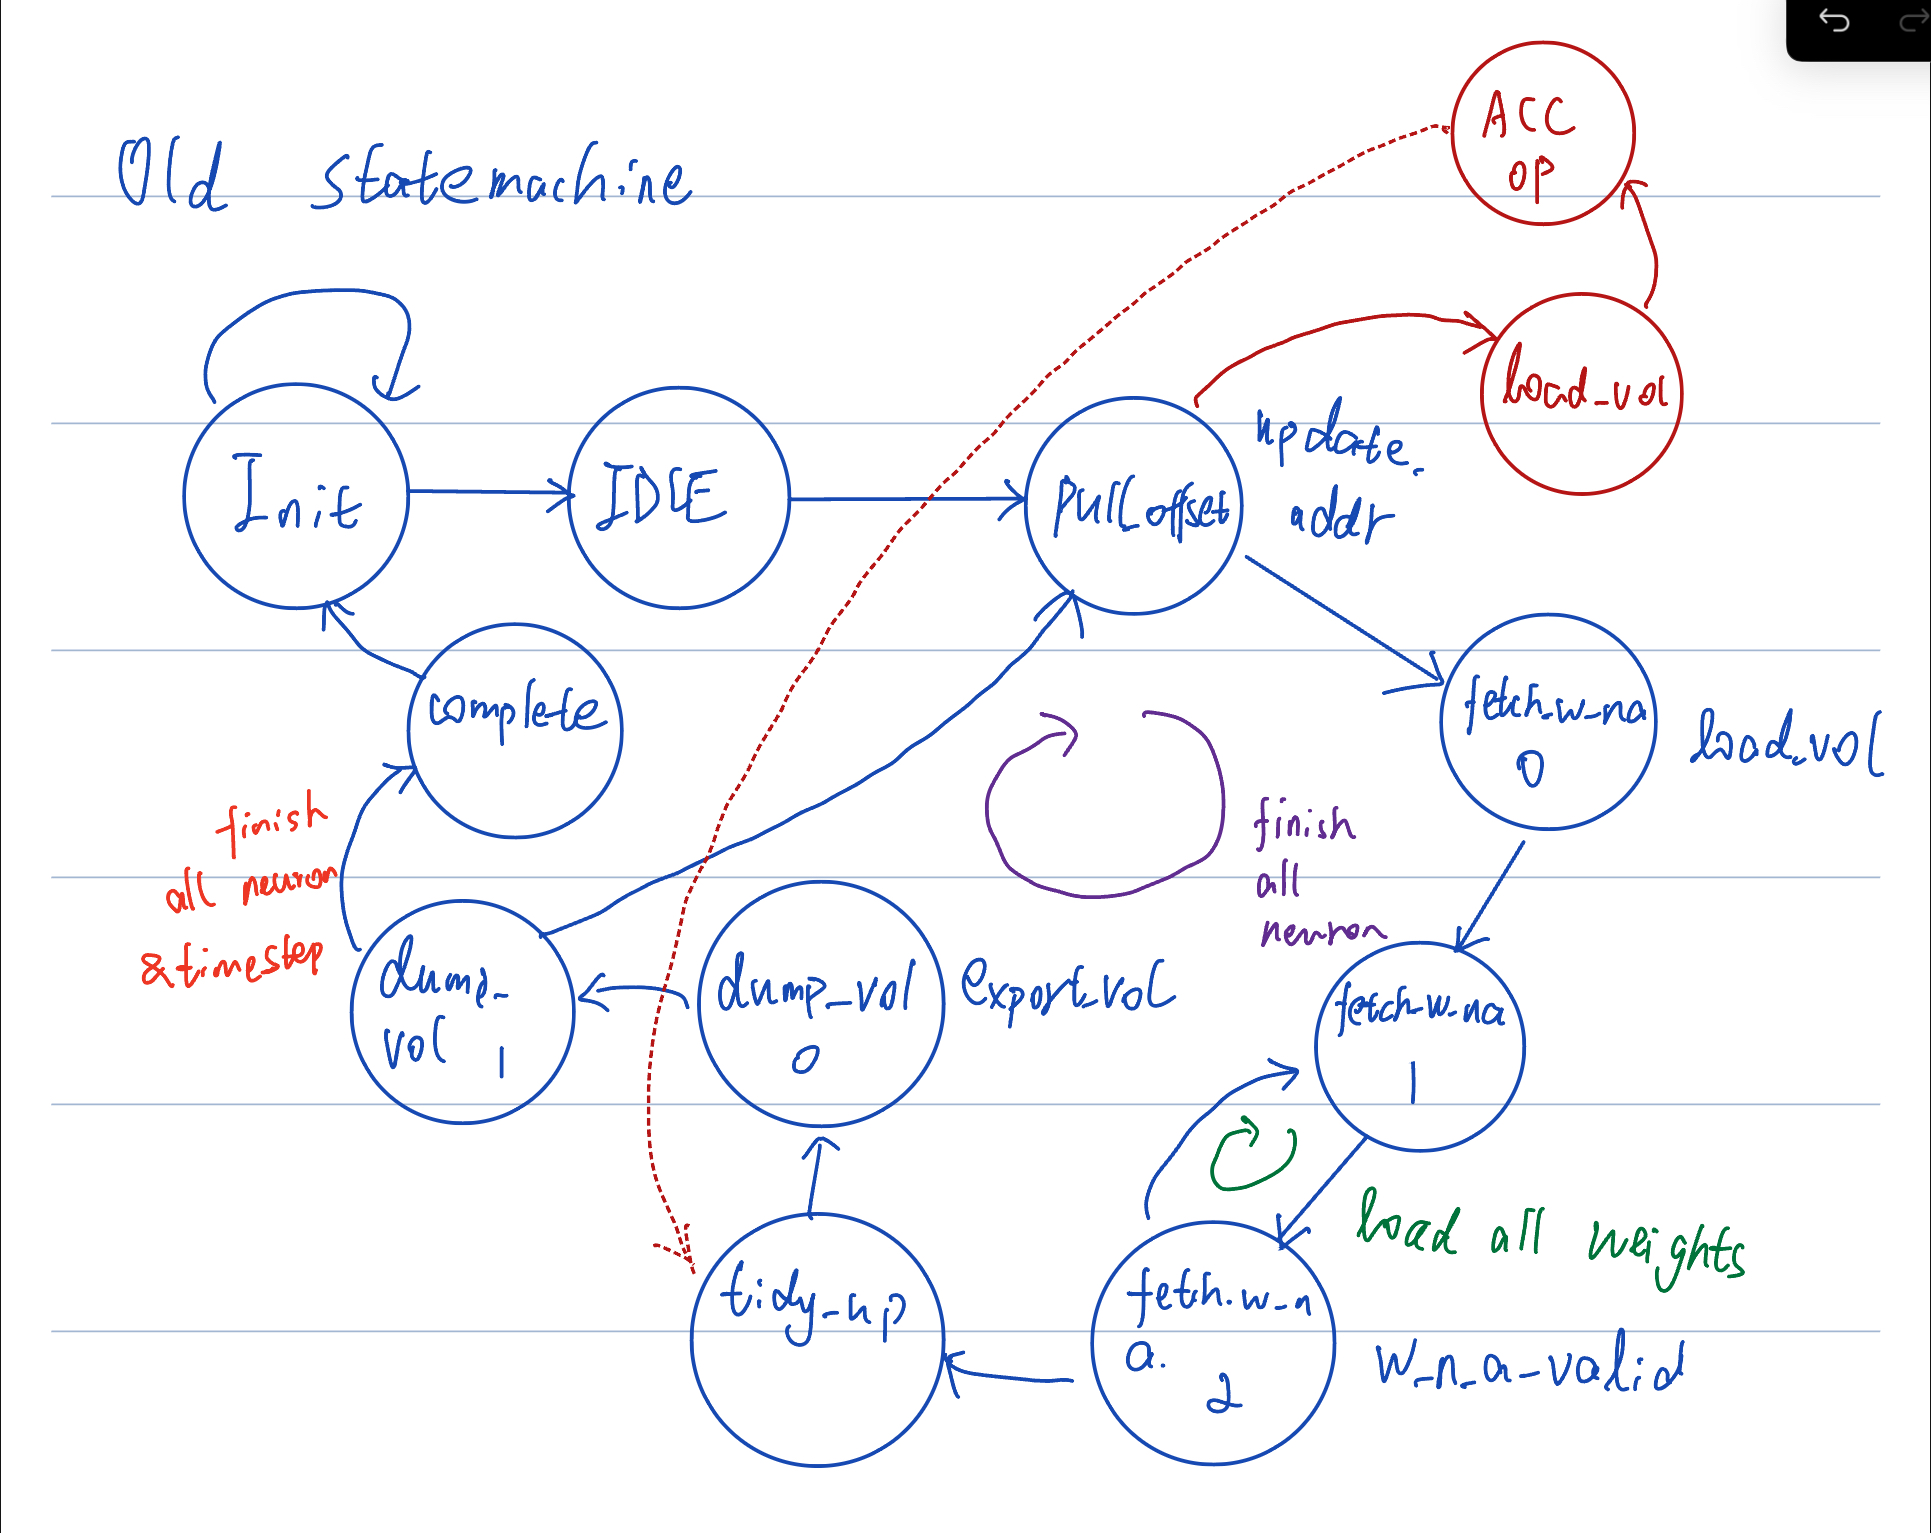 Old statemachine
ACC
op
load_vol
Init
IDLE
Pull offset
update_
addr
fetch_w_na
0
load_vol
complete
finish
all neuron
& timestep
finish
all
neuron
dump_
vol 1
dump_vol
0
export_vol
fetch_w_na
1
load all weights
tidy_up
fetch_w_n
a.
2
w_n_a_valid